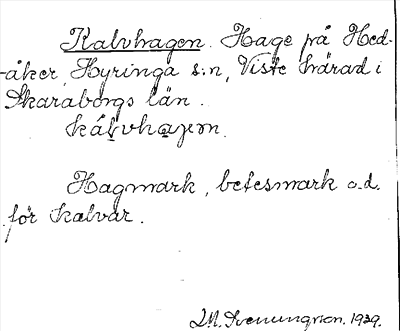 Kalvhagen. Hage på Hed-
-åker, Hyringa s:n, Viste härad i
Skaraborgs län.
kálvhaɡen.
Hagmark, betesmark o.d.
för kalvar.
J.M. Svenungson. 1929.